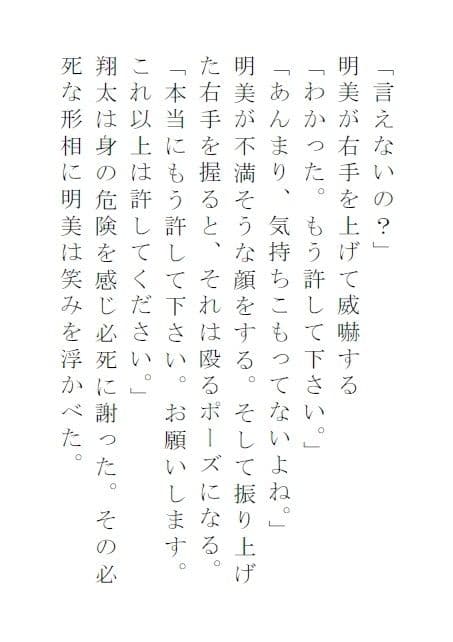 「言えないの？」
明美が右手を上げて威嚇する
「わかった。もう許して下さい。」
「あんまり、気持ちこもってないよね。」
明美が不満そうな顔をする。そして振り上げ
た右手を握ると、それは殴るポーズになる。
「本当にもう許して下さい。お願いします。
これ以上は許してください。」
翔太は身の危険を感じ必死に謝った。その必
死な形相に明美は笑みを浮かべた。